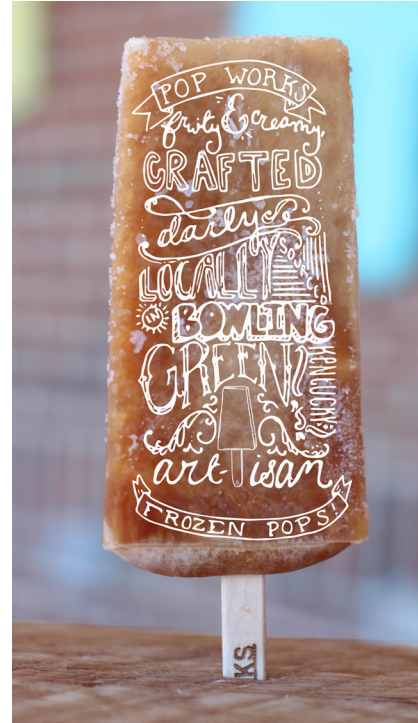 POP WORKS
fruity & creamy
CRAFTED
daily &
LOCALLY
SOURCED
IN BOWLING
GREEN
KENTUCKY'S
artisan
FROZEN POPS!
KS